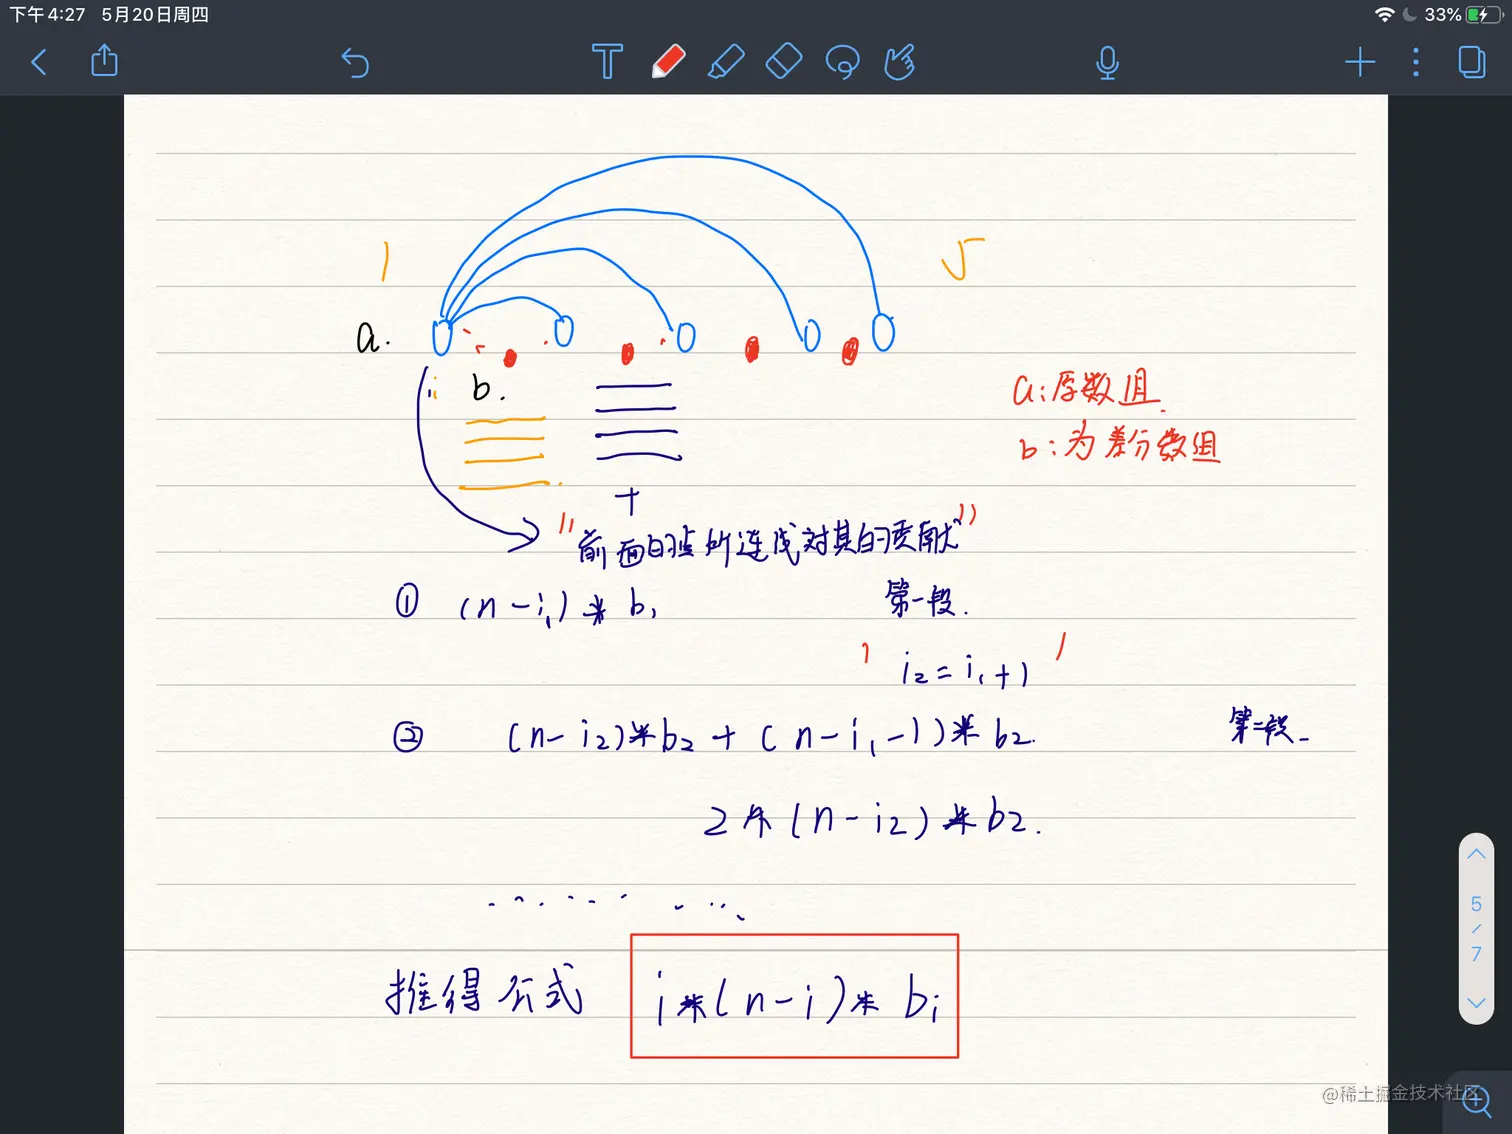 下午4:27 5月20日周四
33%
T
1
5
a.
i
b.
a:原数组
b:为差分数组
+
"前面的点所连线对其的贡献"
① (n-i₁)*b₁ 第一段.
' i₂=i₁+1 '
② (n-i₂)*b₂+(n-i₁-1)*b₂. 第二段
2*(n-i₂)*b₂.
推得公式 i*(n-i)*bᵢ
5
/
7
@稀土掘金技术社区